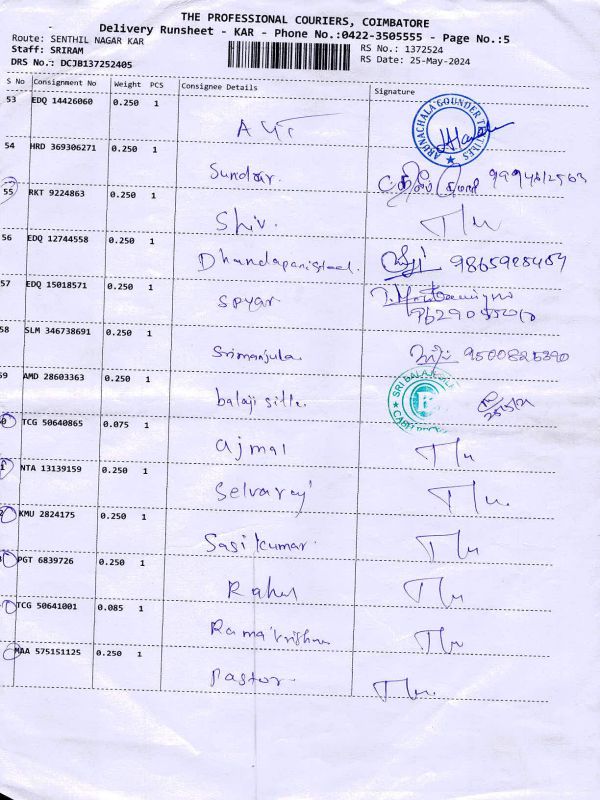 THE PROFESSIONAL COURIERS, COIMBATORE
Delivery Runsheet - KAR - Phone No.:0422-3505555 - Page No.:5
Route: SENTHIL NAGAR KAR
RS No.: 1372524
Staff: SRIRAM
RS Date: 25-May-2024
DRS No.: DCJB137252405
S No Consignment No Weight PCS Consignee Details Signature
53 EDQ 14426060 0.250 1
ARUNACHALA GOUNDER
54 HRD 369306271 0.250 1
Sundar.
55 RKT 9224863 0.250 1
Shiv.
56 EDQ 12744558 0.250 1
Dhandapani 9865928484
57 EDQ 15018571 0.250 1
Spyar
58 SLM 346738691 0.250 1
Srimanjula 9500825390
59 AMD 28603363 0.250 1
balaji silk. SRI BALAJI
TCG 50640865 0.075 1
ajmal
NTA 13139159 0.250 1
Selvaraj
KMU 2824175 0.250 1
Sasi kumar.
PGT 6839726 0.250 1
Rahul
TCG 50641001 0.085 1
Ramakrishna
MAA 575151125 0.250 1
Pastor.